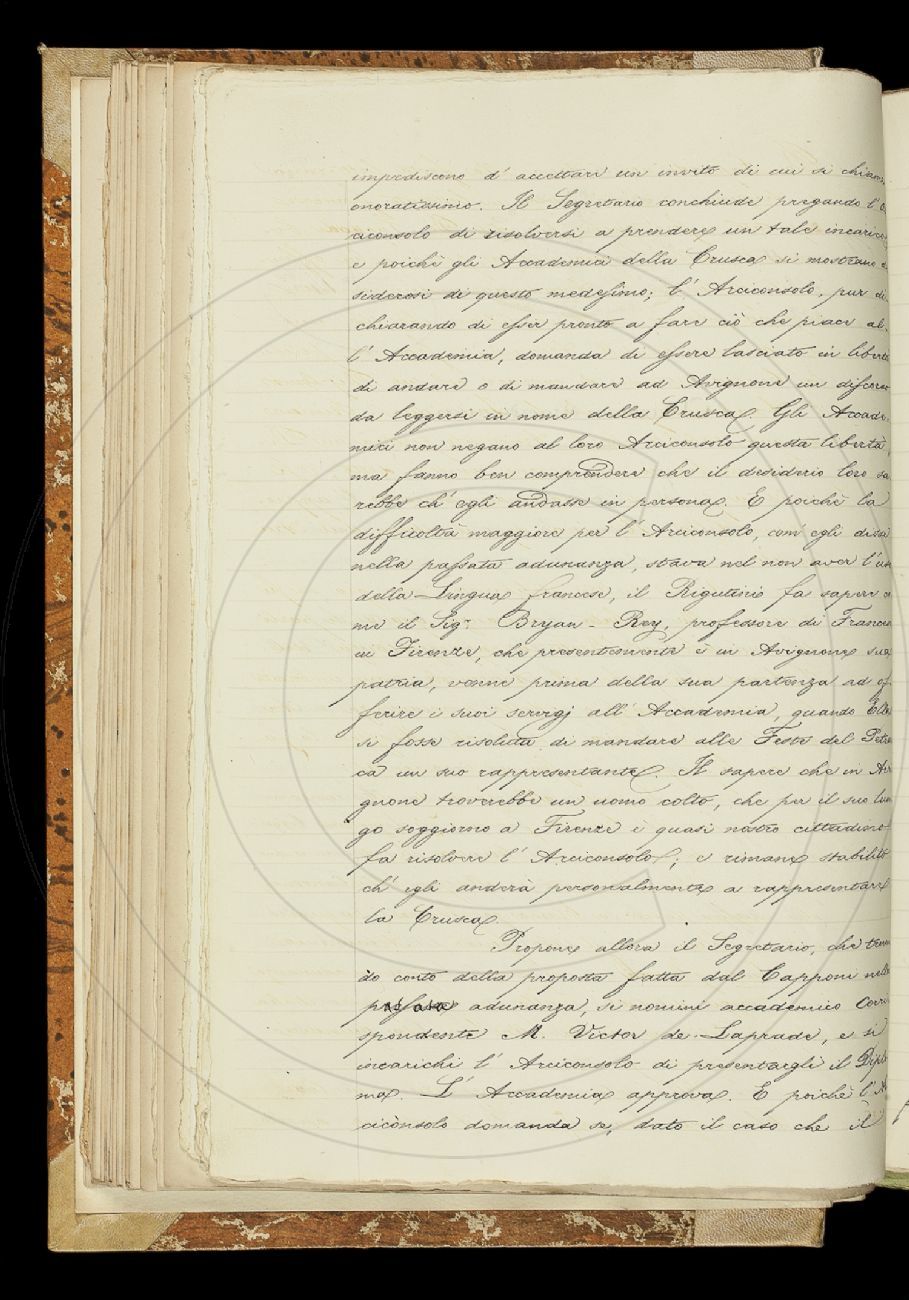 impediscono d' accettare un invito di cui si chiama
onoratissimo. Il Segretario conchiude pregando l' A
ciconsolo di risolversi a prendere un tale incarico,
e poichè gli Accademici della Crusca si mostrano de
siderosi di questo medesimo; l' Arciconsolo, pur di
chiarando di esser pronto a fare ciò che piace al-
l' Accademia, domanda di essere lasciato in libertà
di andare o di mandare ad Avignone un discorso
da leggersi in nome della Crusca. Gli Accade-
mici non negano al loro Arciconsolo questa libertà,
ma fanno ben comprendere che il desiderio loro sa
rebbe ch' egli andasse in persona. E poichè la
difficoltà maggiore per l' Arciconsolo, com' egli disse
nella passata adunanza, stava nel non aver l' uso
della Lingua francese, il Rigutini fa sapere co
me il Sigr. Bryan-Rey, professore di Francese
in Firenze, che presentemente è in Avignone sua
patria, venne prima della sua partenza ad of
ferire i suoi servigj all' Accademia, quando Ella
si fosse risoluta di mandare alle Feste del Petrar
ca un suo rappresentante. Il sapere che in Avi
gnone troverebbe un uomo colto, che per il suo lun
go soggiorno a Firenze è quasi nostro cittadino
fa risolvere l' Arciconsolo; e rimane stabilito
ch' egli anderà personalmente a rappresentare
la Crusca.
Propone allora il Segretario, che tenen
do conto della proposta fatta dal Capponi nella
passata adunanza, si nomini accademico Corri
spondente M. Victor de Laprade, e si
incarichi l' Arciconsolo di presentargli il Diplo
ma. L' Accademia approva. E poichè l' Ar
ciconsolo domanda se, dato il caso che il